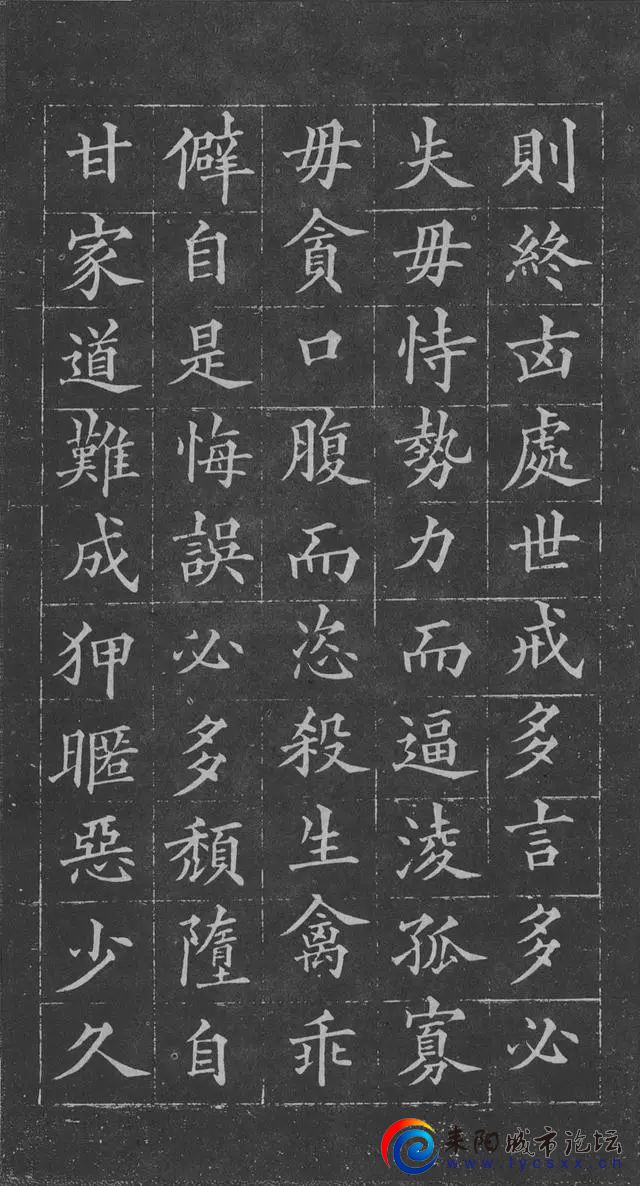 則終凶處世戒多言多必
失毋恃勢力而逼淩孤寡
毋貪口腹而恣殺生禽乖
僻自是悔誤必多頹隳自
甘家道難成狎暱惡少久
耒阳城市论坛
www.lycsxx.cn